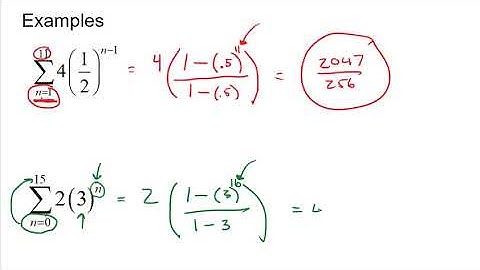 Examples
\sum_{n=1}^{11} 4\left(\frac{1}{2}\right)^{n-1} = 4\left(\frac{1-(.5)^{11}}{1-(.5)}\right) = \frac{2047}{256}
\sum_{n=0}^{15} 2(3)^{n} = 2\left(\frac{1-(3)^{16}}{1-3}\right) = 4